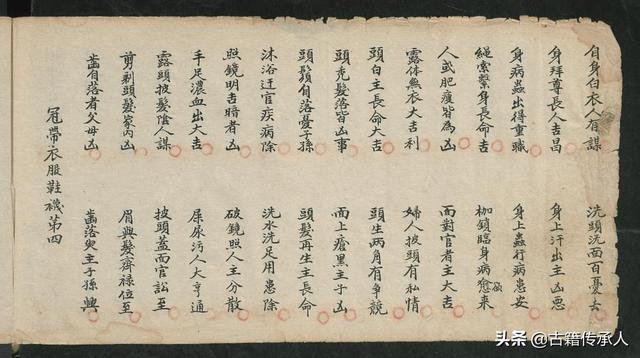 自身白衣人有謀 洗頭洗面百憂去
身拜尊長人吉昌 身上汗出主凶惡
身病蟲出得重職 身上蟲行病患安
繩索繫身長命吉 枷鎖臨身病愈欲來
人或肥瘦皆為凶 面對官者主大吉
露体無衣大吉利 婦人披頭有私情
頭白主長命大吉 頭生兩角有争競
頭禿髮落皆凶事 面上瘡黑主子凶
頭鬚自落憂子孫 頭髮再生主長命
沐浴迁官疾病除 洗水洗足用患除
照鏡明吉暗者凶 破鏡照人主分散
手足濃血出大吉 屎尿汚人大亨通
露頭披髮陰人謀 披頭蓋面官訟至
剪剃頭髮家內凶 眉與髮齊禄位至
齒自落者父母凶 齒落主子孫興
冠帶衣服鞋襪第四
头条 @古籍传承人